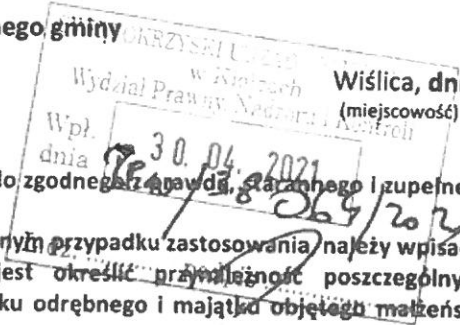 nego gminy
ŚWIĘTOKRZYSKI URZĄD
w Kielcach
Wydział Prawny, Nadzoru i Kontroli
Wiślica, dni
(miejscowość)
Wpł.
dnia
30. 04. 2021
do zgodnego z prawdą, starannego i zupełne
nym przypadku zastosowania należy wpisać
jest określić przynależność poszczególny
ku odrębnego i majątku objętego małżeńs